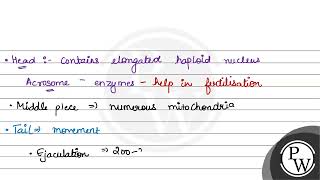 • Head :- Contains elongated haploid nucleus
Acrosome - enzymes - help in fertilisation
• Middle piece ⇒ numerous mitochondria
• Tail ⇒ movement
• Ejaculation ⇒ 200-
PW